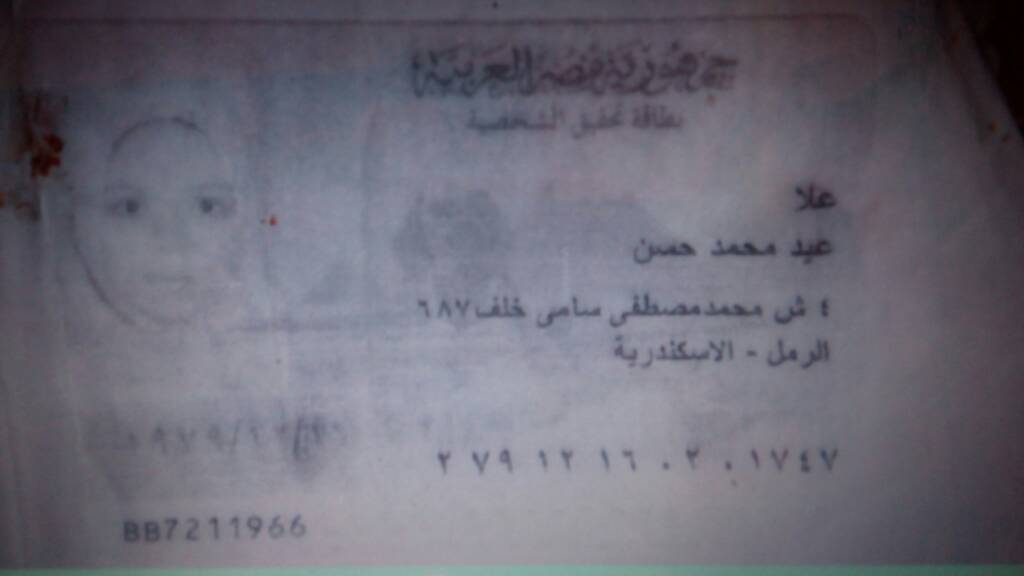 جمهورية مصر العربية
بطاقة تحقيق الشخصية
علا
عيد محمد حسن
٤ ش محمدمصطفى سامى خلف٦٨٧
الرمل - الاسكندرية
٢ ٧٩ ١٢ ١٦ ٠ ٢ ٠ ١٧٤٧
BB7211966